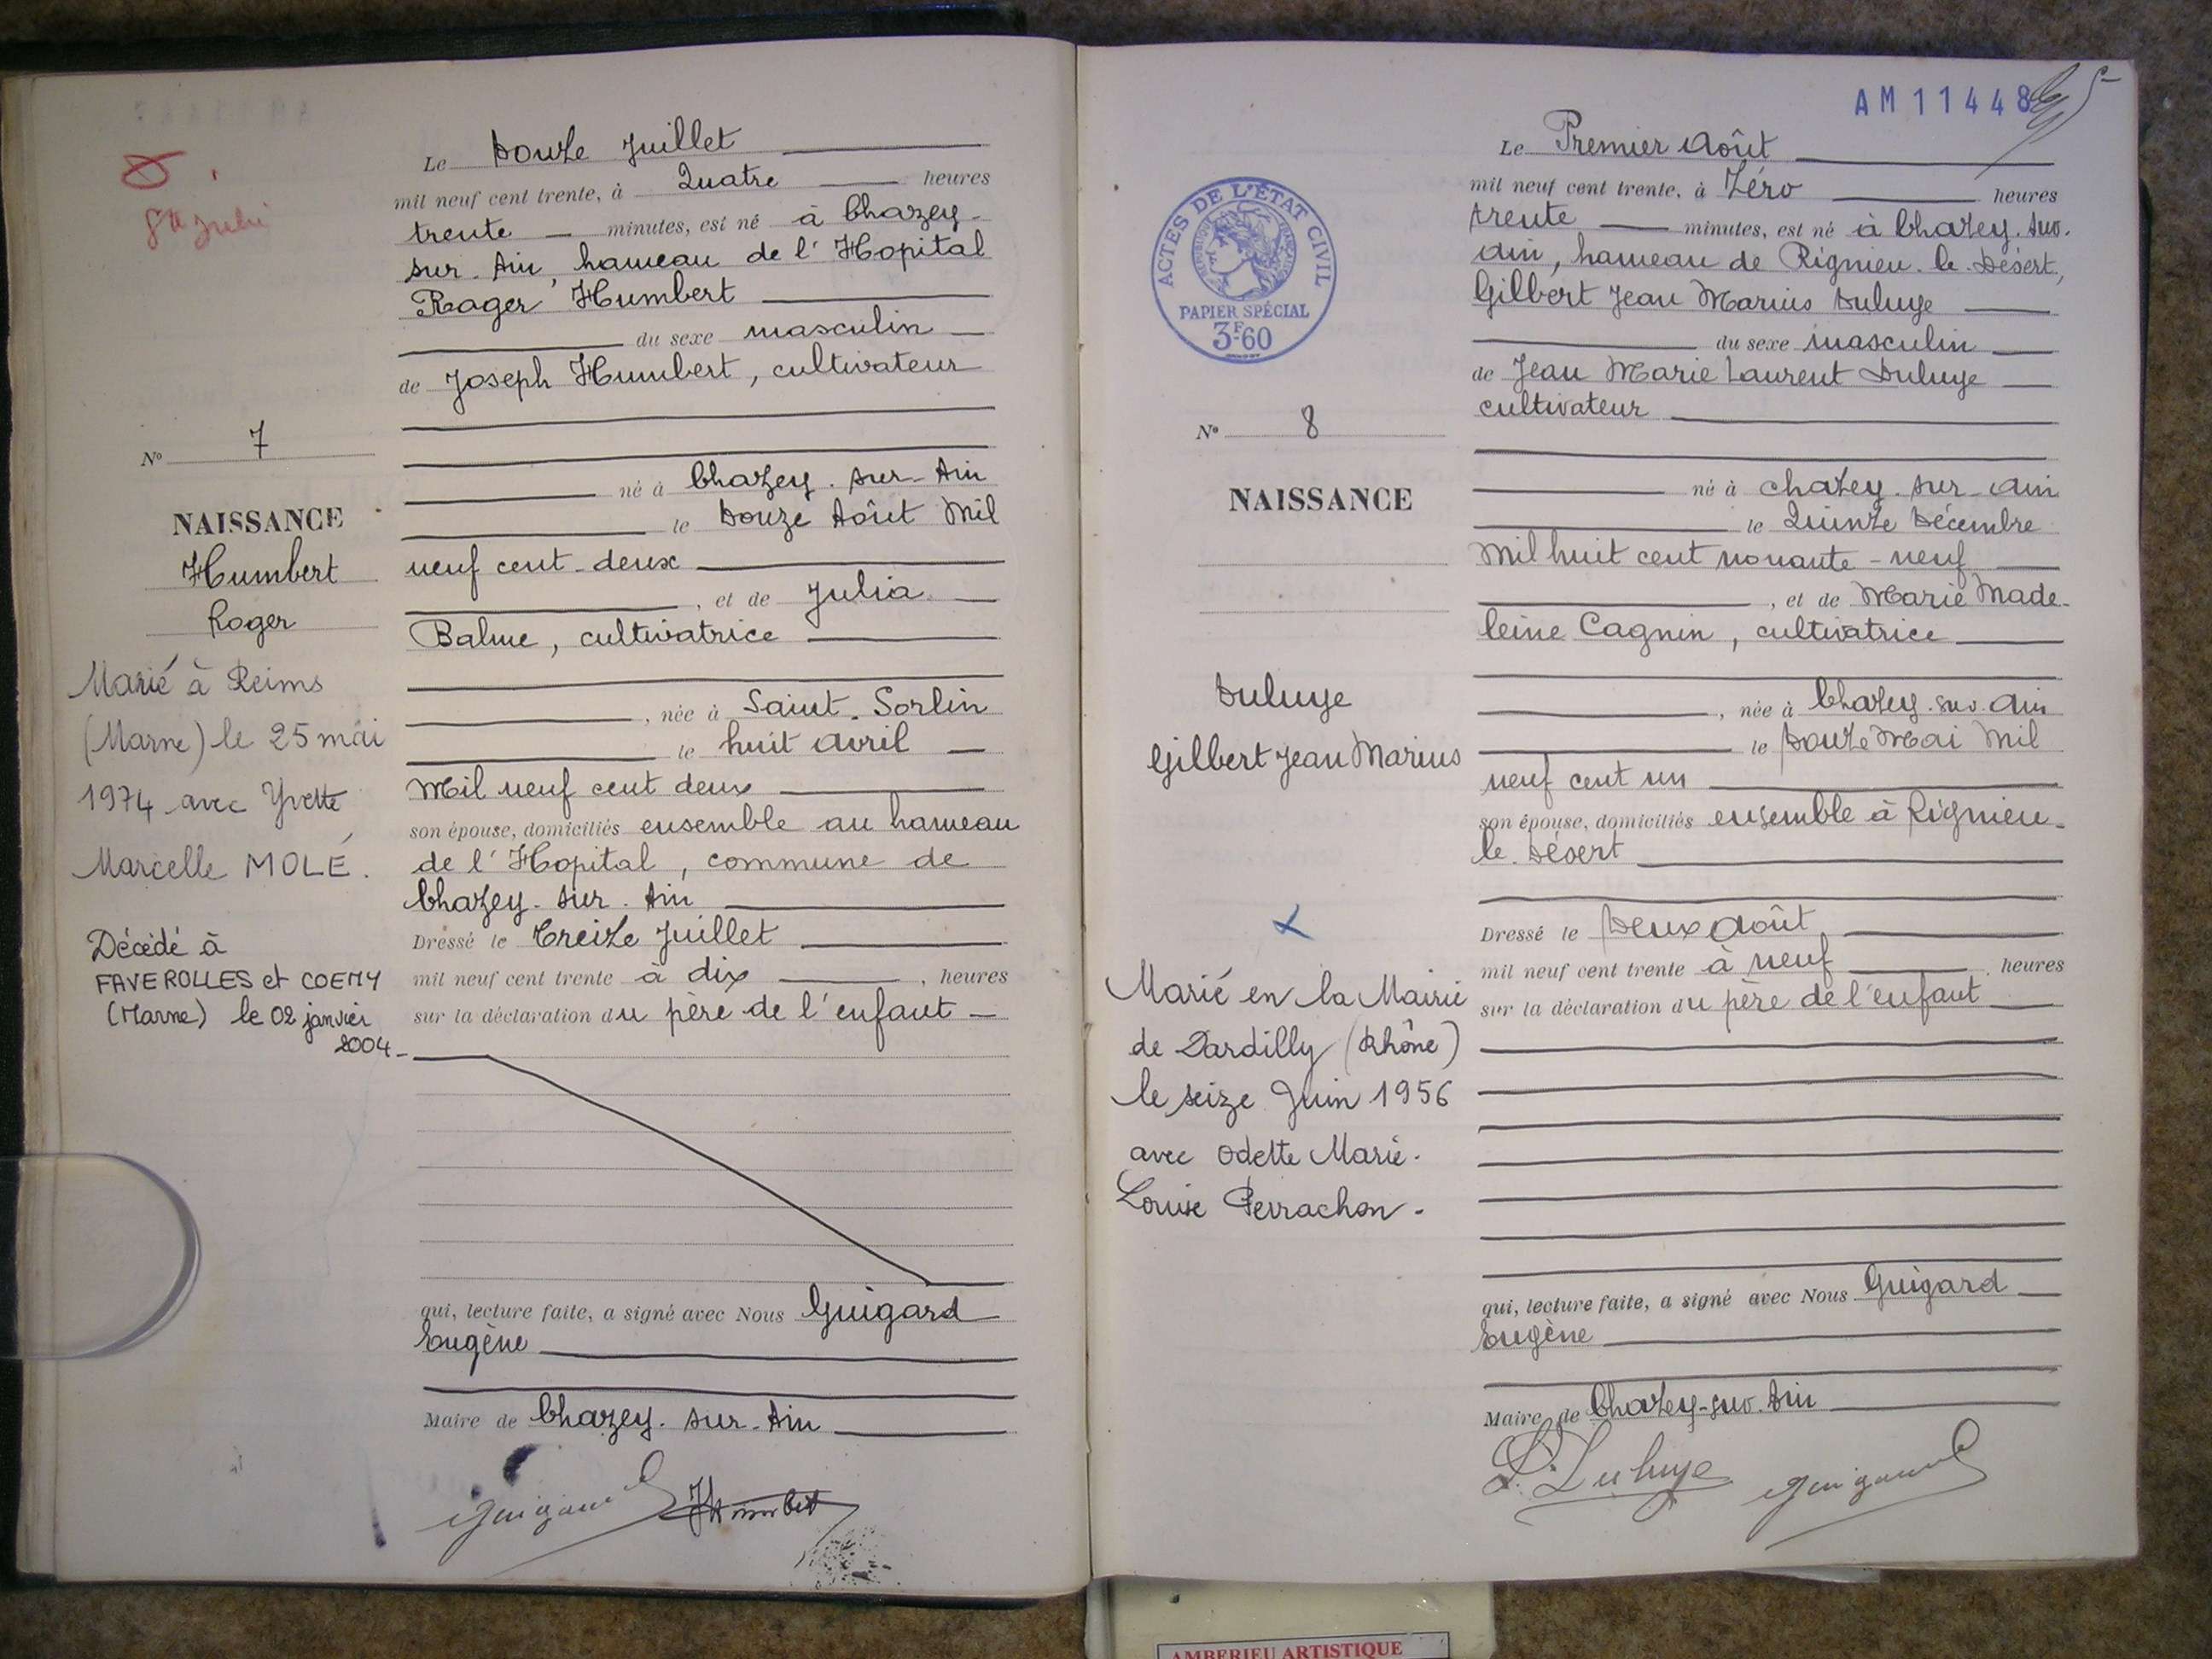 Le Douze Juillet
mil neuf cent trente, à Quatre heures
trente minutes, est né à Chazey-
sur-Ain, hameau de l'Hopital
Roger Humbert
du sexe masculin
de Joseph Humbert, cultivateur
né à Chazey-sur-Ain
le Douze Août Mil
neuf cent-deux
, et de Julia
Balme, cultivatrice
, née à Saint-Sorlin
le huit Avril
Mil neuf cent deux
son épouse, domiciliés ensemble au hameau
de l'Hopital, commune de
Chazey-sur-Ain
Dressé le Treize Juillet
mil neuf cent trente à dix, heures
sur la déclaration du père de l'enfant
qui, lecture faite, a signé avec Nous Guigard
Eugène
Maire de Chazey-sur-Ain
Guigard
Humbert
No 7
NAISSANCE
Humbert
Roger
Marié à Reims
(Marne) le 25 mai
1974 avec Yvette
Marcelle MOLÉ.
Décédé à
FAVEROLLES et COEMY
(Marne) le 02 janvier
2004-
AM11448
ACTES DE L'ÉTAT CIVIL
PAPIER SPÉCIAL
3F60
No 8
NAISSANCE
Duluye
Gilbert Jean Marius
Marié en la Mairie
de Dardilly (Rhône)
le seize Juin 1956
avec Odette Marie-
Louise Perrachon-
Le Premier Août
mil neuf cent trente, à Zéro heures
trente minutes, est né à Chazey-sur-
Ain, hameau de Rignieu-le-Désert,
Gilbert Jean Marius Duluye
du sexe masculin
de Jean Marie Laurent Duluye
cultivateur
né à Chazey-sur-Ain
le Quinze Décembre
Mil huit cent nonante-neuf
, et de Marie Made-
leine Cagnin, cultivatrice
, née à Chazey-sur-Ain
le Douze Mai Mil
neuf cent un
son épouse, domiciliés ensemble à Rignieu-
le-Désert
Dressé le Deux Août
mil neuf cent trente à neuf, heures
sur la déclaration du père de l'enfant
qui, lecture faite, a signé avec Nous Guigard
Eugène
Maire de Chazey-sur-Ain
L. Duluye
Guigard
AMBERIEU ARTISTIQUE